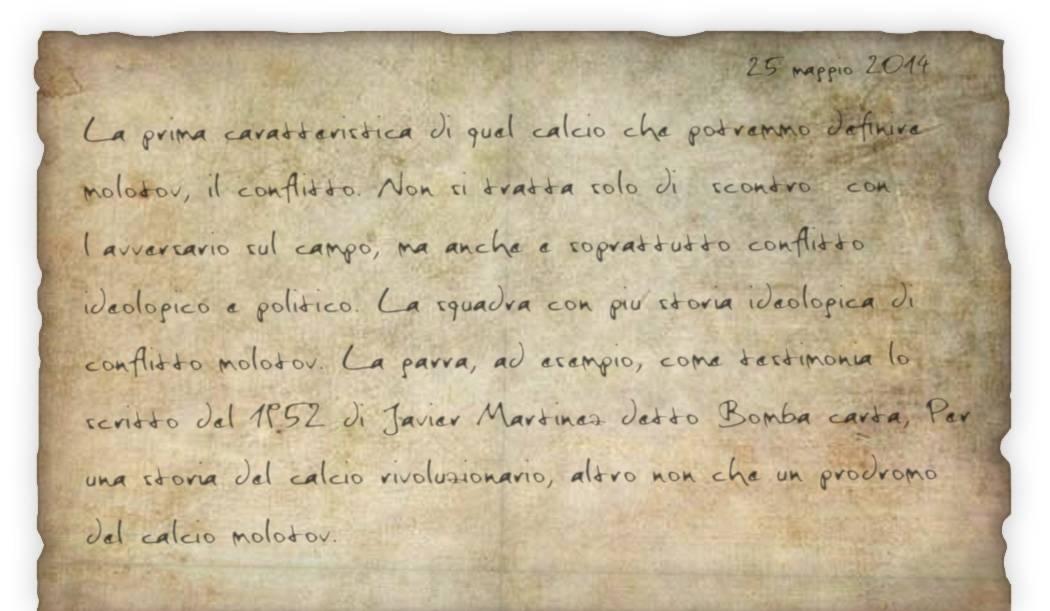 25 maggio 2014
La prima caratteristica di quel calcio che potremmo definire
molotov, il conflitto. Non si tratta solo di scontro con
l avversario sul campo, ma anche e soprattutto conflitto
ideologico e politico. La squadra con piu storia ideologica di
conflitto molotov. La garra, ad esempio, come testimonia lo
scritto del 1952 di Javier Martinez detto Bomba carta, Per
una storia del calcio rivoluzionario, altro non che un prodromo
del calcio molotov.